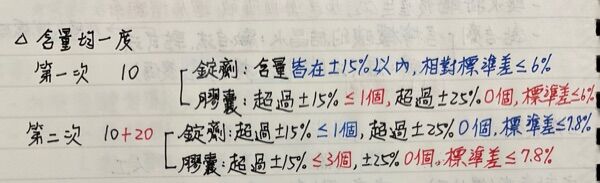 △ 含量均一度
第一次 10 錠劑：含量皆在±15%以內，相對標準差≤6%
膠囊：超過±15%≤1個，超過±25% 0個，標準差≤6%
第二次 10+20 錠劑：超過±15%≤1個，超過±25% 0個，標準差≤7.8%
膠囊：超過±15%≤3個，±25% 0個，標準差≤7.8%